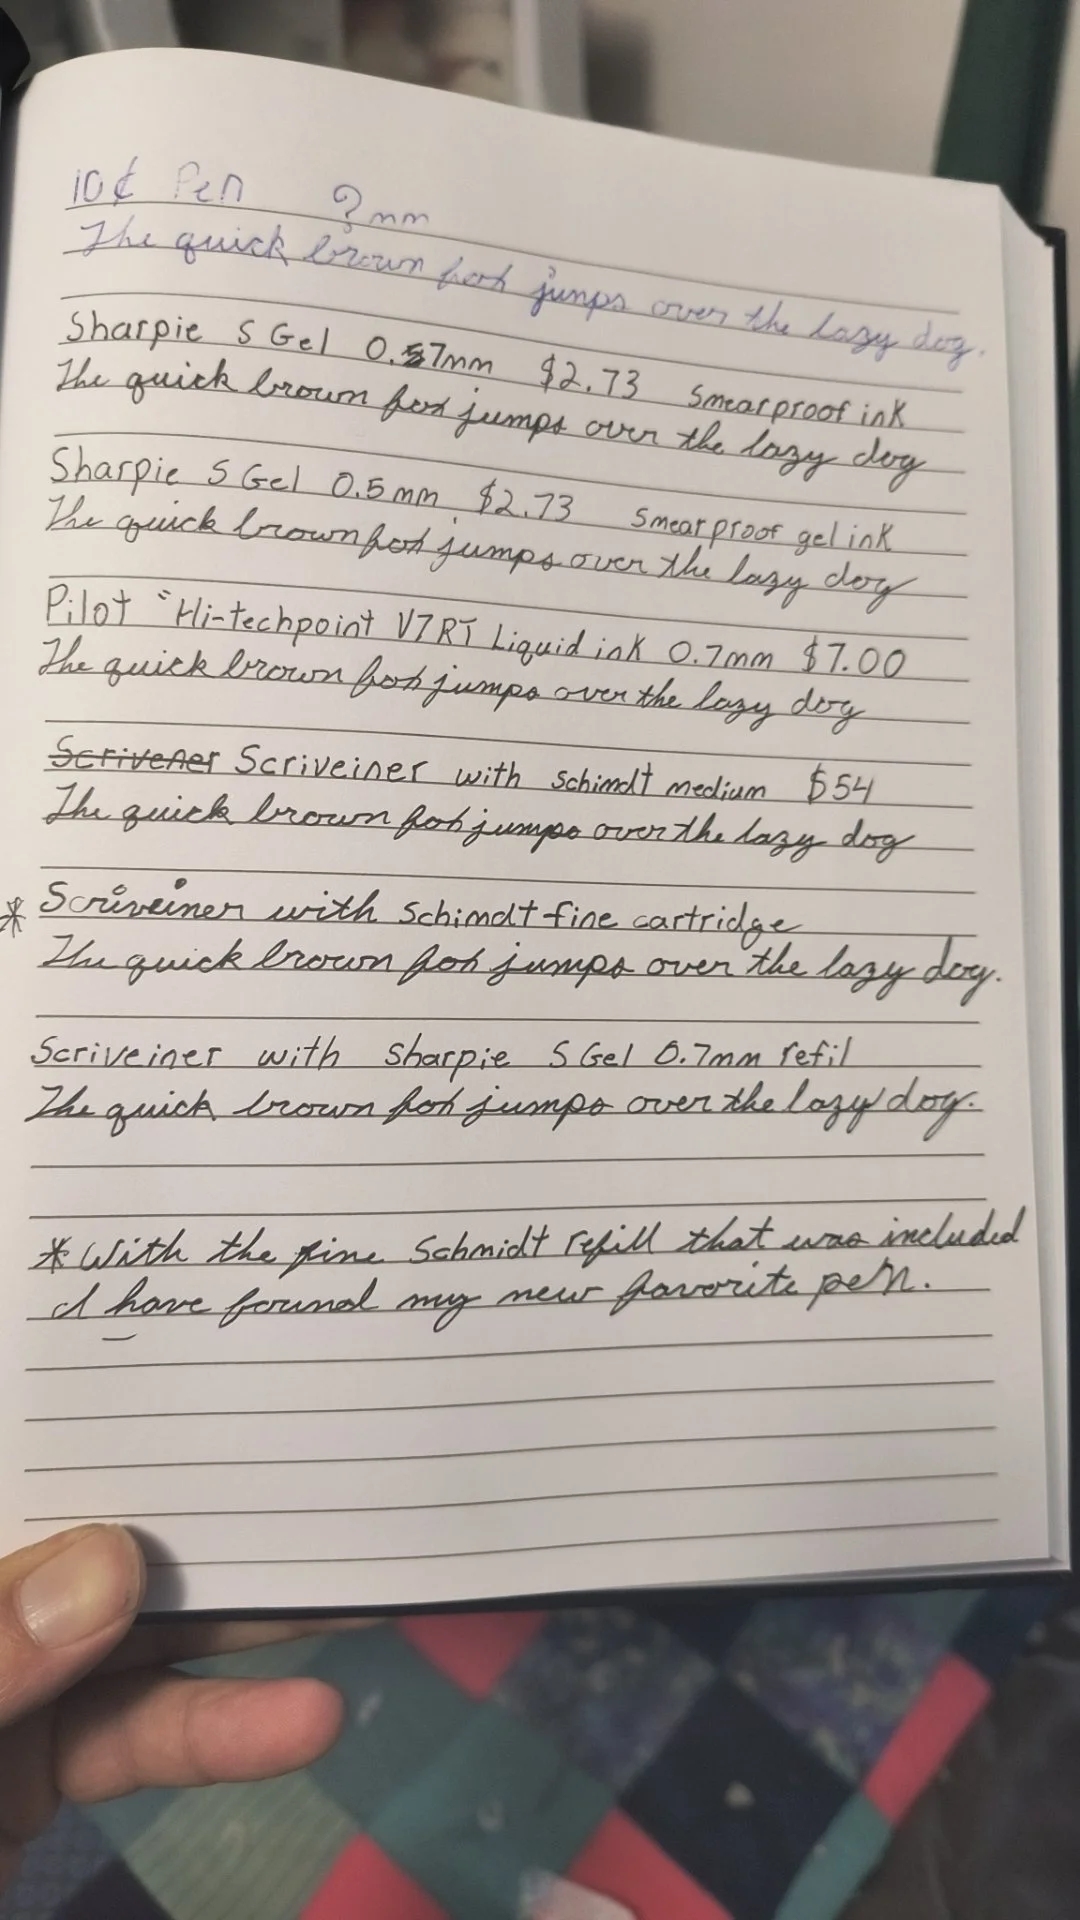 10¢ Pen ?mm
The quick brown fox jumps over the lazy dog.
Sharpie S Gel 0.57mm $2.73 Smearproof ink
The quick brown fox jumps over the lazy dog
Sharpie S Gel 0.5mm $2.73 Smearproof gel ink
The quick brown fox jumps over the lazy dog
Pilot "Hi-techpoint V7RT Liquid ink 0.7mm $7.00
The quick brown fox jumps over the lazy dog
Scrivener Scriveiner with schimdt medium $54
The quick brown fox jumps over the lazy dog
* Scriveiner with Schimdt fine cartridge
The quick brown fox jumps over the lazy dog.
Scriveiner with Sharpie S Gel 0.7mm refil
The quick brown fox jumps over the lazy dog.
* With the fine Schmidt refill that was included
I have found my new favorite pen.